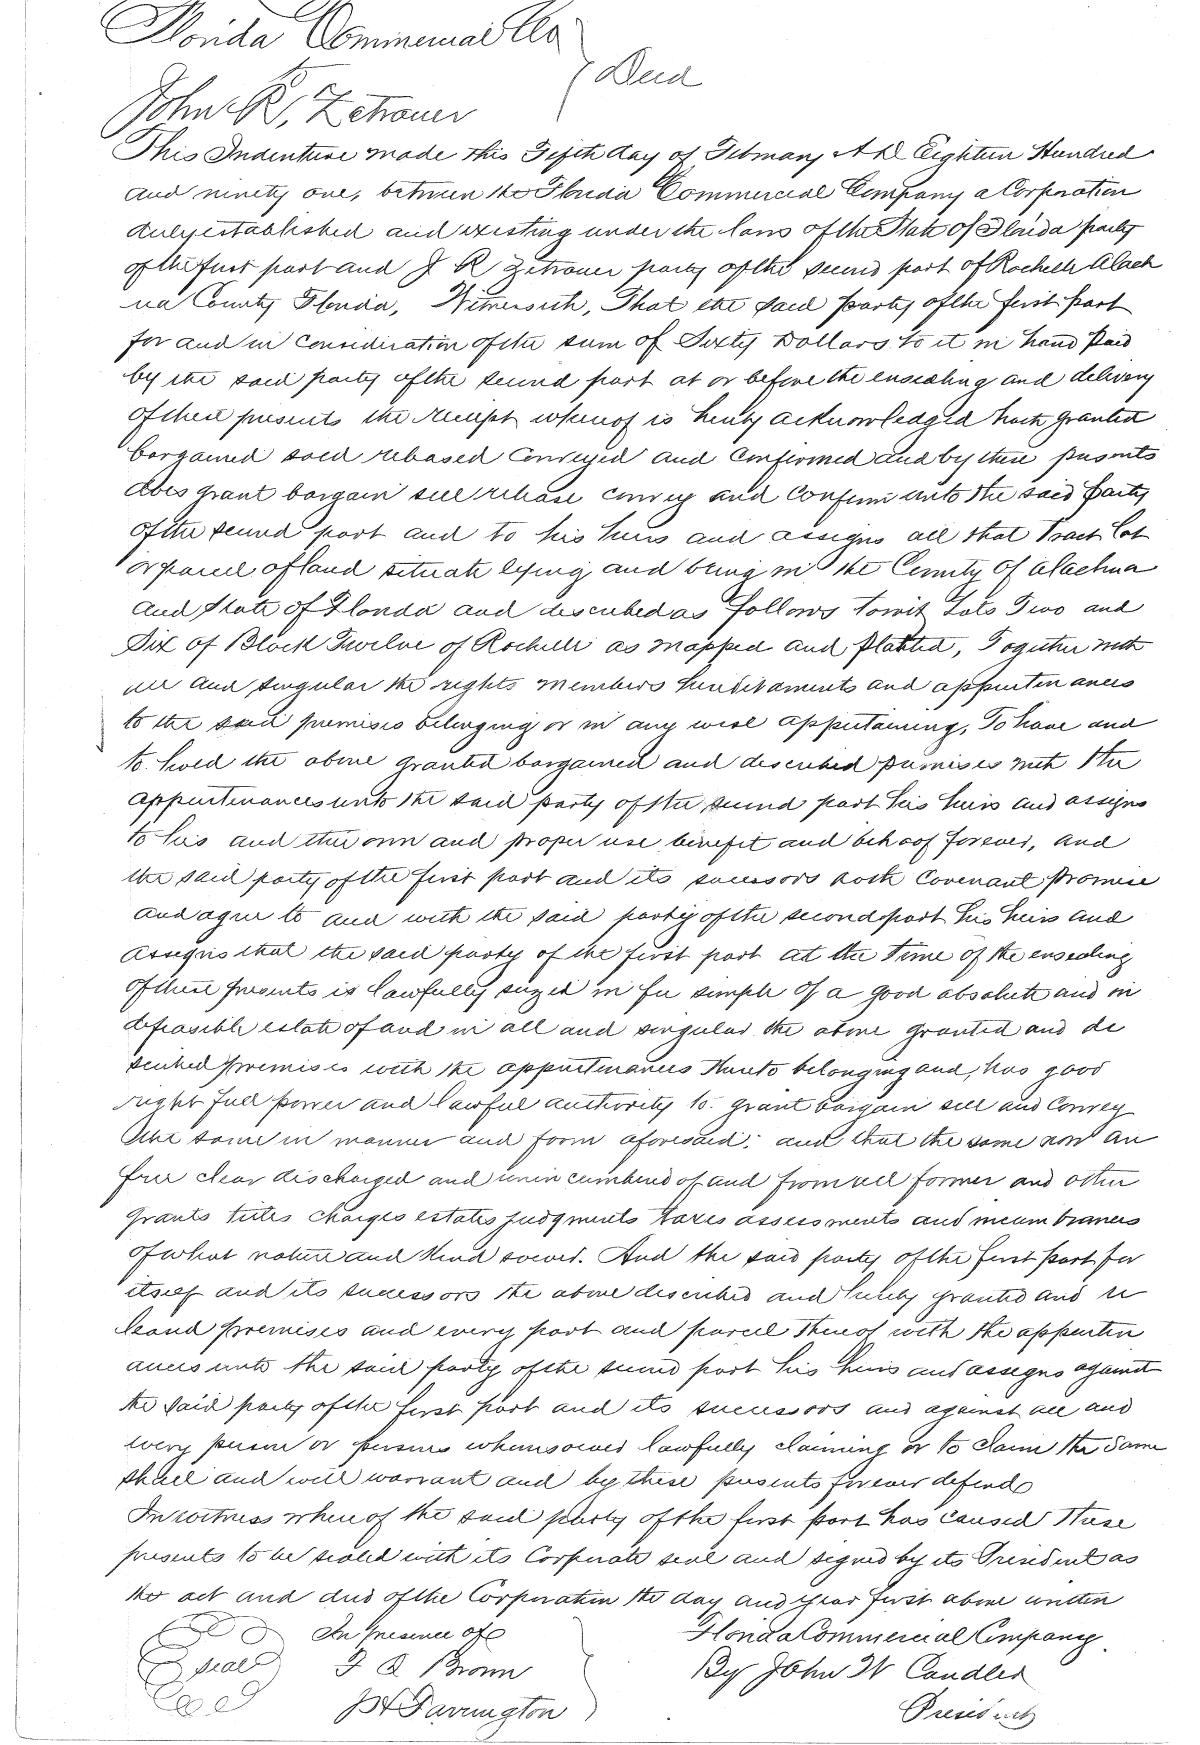 Florida Commercial Co
Deed
John R, Zetrouer
This Indenture made this Fifth day of February A D Eighteen Hundred
and ninety one, between the Florida Commercial Company a Corporation
duly established and existing under the laws of the State of Florida party
of the first part and J R Zetrouer party of the second part of Rochelle Alach
ua County Florida, Witnesseth, That the said party of the first part
for and in consideration of the sum of Sixty Dollars to it in hand paid
by the said party of the second part at or before the ensealing and delivery
of these presents the receipt whereof is hereby acknowledged hath granted
bargained sold released conveyed and confirmed and by these presents
does grant bargain sell release convey and confirm unto the said party
of the second part and to his heirs and assigns all that Tract Lot
or parcel of land situate lying and being in the County of Alachua
and State of Florida and described as follows towit Lots Two and
Six of Block Twelve of Rochelle as mapped and platted, Together with
all and singular the rights members hereditaments and appurtenances
to the said premises belonging or in any wise appertaining, To have and
to hold the above granted bargained and described premises with the
appurtenances unto the said party of the second part his heirs and assigns
to his and their own and proper use benefit and behoof forever, and
the said party of the first part and its sucessors doth covenant promise
and agree to and with the said party of the second part his heirs and
assigns that the said party of the first part at the time of the ensealing
of these presents is lawfully seized in fee simple of a good absolute and in
defeasible estate of and in all and singular the above granted and de
scribed premises with the appurtenances thereto belonging and, has good
right full power and lawful authority to grant bargain sell and convey
the same in manner and form aforesaid; and that the same now are
free clear discharged and unincumbered of and from all former and other
grants titles charges estates judgments taxes assessments and incumbrances
of what nature and kind soever. And the said party of the first part for
itself and its successors the above described and hereby granted and re
leased premises and every part and parcel thereof with the appurten
ances unto the said party of the second part his heirs and assigns against
the said party of the first part and its successors and against all and
every person or persons whomsoever lawfully claiming or to claim the same
shall and will warrant and by these presents forever defend
In witness whereof the said party of the first part has caused these
presents to be sealed with its Corporate seal and signed by its President as
the act and deed of the Corporation the day and year first above written
In presence of Florida Commercial Company.
Seal F Q Brown By John W Candler
J H Farrington President